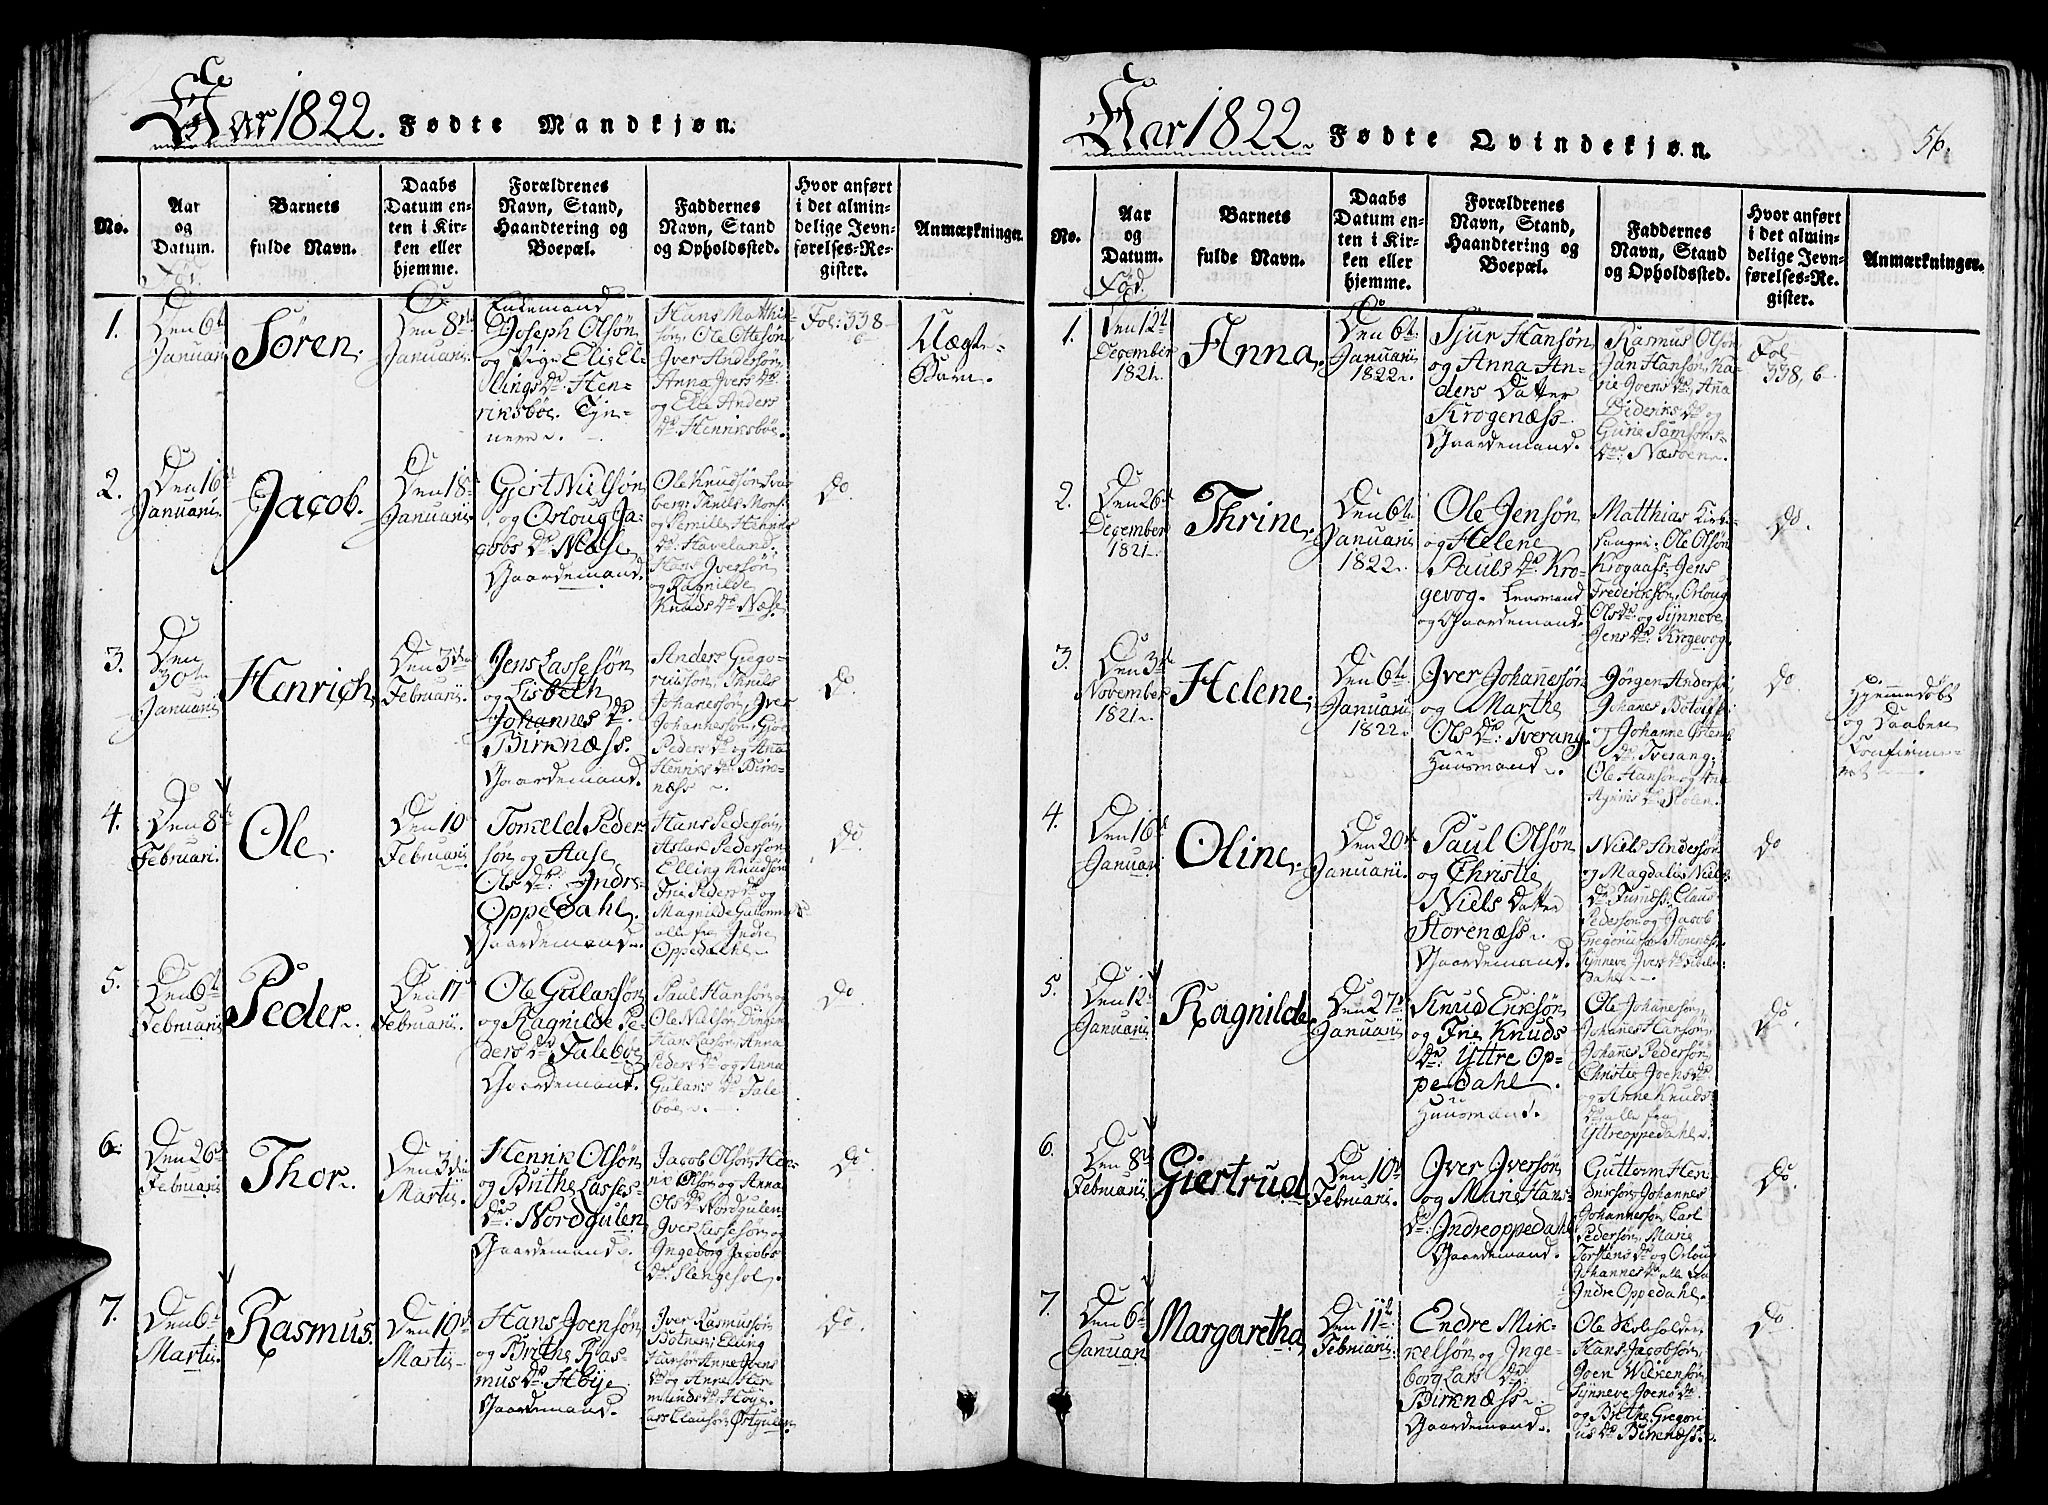 Aar 1822. Fødte Mandkjøn.
No.
Aar
og
Datum.
Fød.
Barnets
fulde Navn.
Daabs
Datum en-
ten i Kir-
ken eller
hjemme.
Forældrenes
Navn, Stand,
Haandtering og
Boepæl.
Faddernes
Navn, Stand
og Opholdssted.
Hvor anført
i det almin-
delige Jevn-
førelses-Re-
gister.
Anmærkninger.
1.
Den 6te
Januarii
Søren.
Den 8de
Januarii.
Enkemand
Joseph Olsøn
og Pige Elie El-
lings Dr. Hen-
riksbøe. Tjen-
nere.
Hans Matthi-
søn, Ole Ottesøn
Iver Andersøn,
Anna Ivers Dr.
og Elie Anders
Dr. Henriksbøe.
Fol: 338
Uægte
Barn.
2.
Den 16de
Januarii.
Jacob.
Den 18de
Januarii.
Gjert Nielsøn
og Orloug Ja-
cobs Dr. Næse
Gaardemand.
Ole Knudsøn
berg, Thuls Mons.
og Pernille Hanns
Dr. Haveland.
Hans Iversøn
og Ragnilde
Knuds Dr. Næse
do.
3.
Den
30te
Januarii.
Henrich
Den 3die
Februarii.
Jens Lassesøn
og Lisbeth
Johannes Dr.
Birknæss.
Gaardemand.
Anders Grego-
riusson, Thuls
Johannesson, Iver
Johannesson, Giøe
Peders Dr. og Ana
Henriks Dr. Birk-
næss.
do.
4.
Den 8de
Februarii.
Ole.
Den 10de
Februarii.
Tomeld Peder-
søn og Aase
Ols Dr. Indre
Oppedahl.
Gaardemand.
Hans Pedersøn,
Aslak Pedersøn
Elling Knudsøn
Frie Peders Dr. og
Magnilde Guttorms Dr.
alle fra Indre
Oppedahl.
do.
5.
Den 6te
Februarii
Peder.
Den 17de
Februarii.
Ole Gulaksøn
og Ragnilde Pe-
ders Dr. Talebøe
Gaardemand.
Paul Hansøn og
Ole Nielsøn Dingen
Hans Larsøn, Anna
Peders Dr. og Anna
Gulaks Dr. Tale-
bøe.
do.
6.
Den 26de
Februarii
Thor.
Den 3die
Martii.
Henrik Olsøn
og Brithe Lasses
Dr. Nordgulen
Gaardemand.
Jacob Olsøn, Hen-
rik Olsøn og Anna
Ols Dr. Nordgulen
Iver Lassesøn og
Ingeborg Jacobs
Dr. Slengesol.
do.
7.
Den 6te
Martii.
Rasmus.
Den 10de
Martii
Hans Joensøn
og Brithe Ras-
mus Dr. Høije
Gaardemand.
Iver Rasmussøn
Botnen, Elling
Hansøn, Anne Joens
Dr. og Anne Her-
munds Dr. Høije.
Lars Clausøn Østgulen
do.
Aar 1822. Fødte Qvindekjøn.
56.
No.
Aar
og
Datum.
Fød.
Barnets
fulde Navn.
Daabs
Datum en-
ten i Kir-
ken eller
hjemme.
Forældrenes
Navn, Stand,
Haandtering og
Boepæl.
Faddernes
Navn, Stand
og Opholdssted.
Hvor anført
i det almin-
delige Jevn-
førelses-Re-
gister.
Anmærkninger.
1.
Den 12te
December
1821.
Anna.
Den 6te
Januarii
1822.
Sjur Hansøn
og Anna An-
ders Datter
Krogenæss.
Gaardemand.
Rasmus Olsøn
Jan Hansøn, Ka-
rie Joens Dr. Ana
Dideriks Dr. og
Gurie Samsons
Dr. Næsøen.
Fol
338, 6
2.
Den 26de
December
1821.
Thrine.
Den 6te
Januarii
1822.
Ole Jensøn
og Helene
Pauls Dr. Kro-
gevog. Lensmand
og Gaardemand.
Matthias Kirke-
sanger, Ole Olsøn
Krogaass. Jens
Frederiksøn, Orloug
Ols Dr. og Synneve
Jens Dr. Krogevog.
do.
3.
Den 3die
November
1821.
Helene.
Den 6te
Januarii
1822.
Iver Johanesøn
og Marthe
Ols Dr. Tverang.
Huusmand.
Jørgen Andersø
Johanes
og Johanne
Dr. Tverang.
Ole Hansøn og Ana
Dr. Stolen.
do
Hjemmedøbt
og Daaben
Confirme-
ret
4.
Den 16de
Januarii
Oline.
Den 20de
Januarii.
Paul Olsøn
og Christie
Niels Datter
Storenæss.
Gaardemand.
Niels Andersøn
og Magdalis Niels
Dr. Furnæss. Claus
Pedersøn og Jacob
Gregoriisøn Storenæss.
Synneve Ivers Dr.
Dahl
do
5.
Den 12te
Januarii
Ragnilde
Den 27de
Januarii
Knud Eriksøn
og Frie Knuds
Dr. Yttre Op-
pedahl.
Huusmand.
Ole Johanesøn
Johanes Hansøn,
Johanes Pedersøn
Christie Joens Dr.
og Anne Knuds
Dr. alle fra
Yttreoppedahl.
do.
6.
Den 8de
Februarii
Giertrud
Den 10de
Februarii.
Iver Iversøn
og Marie Hans
Dr. Indreoppedahl
Gaardemand.
Guttorm Hen-
driksøn, Johannes
Johannesøn, Carl
Pedersøn, Marie
Torstens Dr. og Orloug
Johannes Dr. alle fra
Indre Oppedahl.
do.
7.
Den 6te
Januarii
Margaretha
Den 11te
Februarii.
Endre Mik-
kelsøn og Inge-
borg Lars Dr.
Birknæss.
Gaardemand.
Ole Skoleholder
Hans Jacobsøn,
Joen Wilkensøn,
Synneve Joens Dr.
og Brithe Gregori-
us Dr. Birknæss.
do